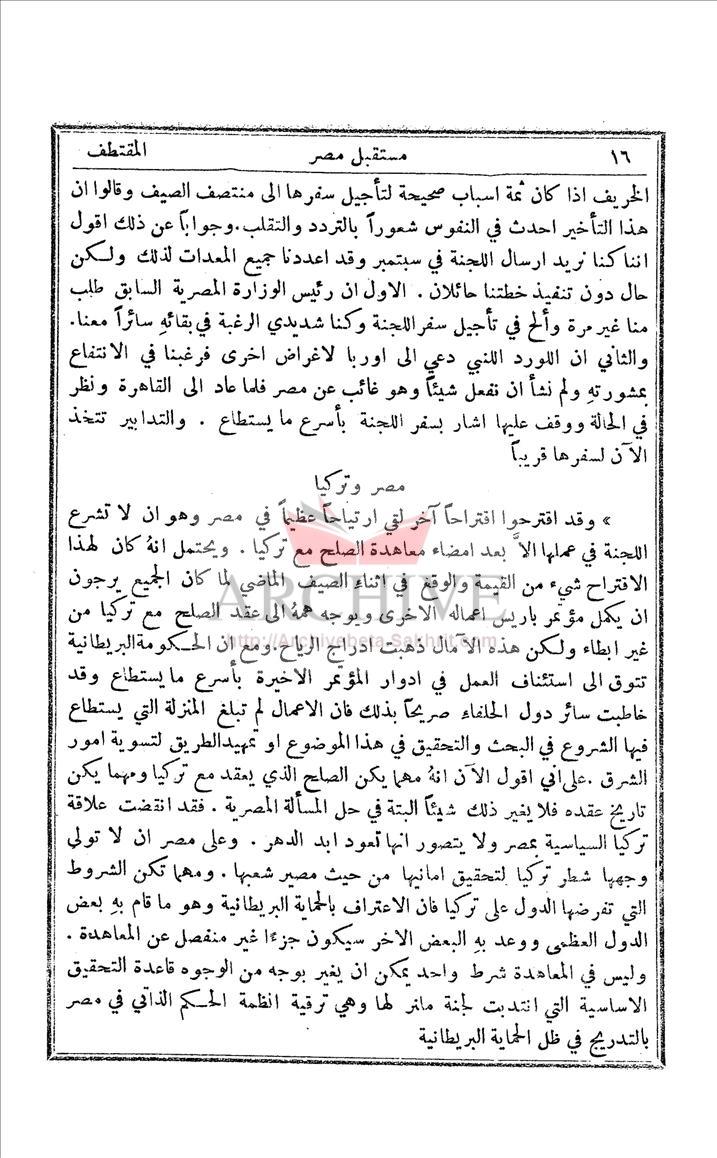 ١٦ مستقبل مصر المقتطف
الخريف اذا كان ثمة اسباب صحيحة لتأجيل سفرها الى منتصف الصيف وقالوا ان
هذا التأخير احدث في النفوس شعوراً بالتردد والتقلب. وجواباً عن ذلك اقول
اننا كنا نريد ارسال اللجنة في سبتمبر وقد اعددنا جميع المعدات لذلك ولكن
حال دون تنفيذ خطتنا حائلان . الاول ان رئيس الوزارة المصرية السابق طلب
منا غير مرة وألح في تأجيل سفر اللجنة وكنا شديدي الرغبة في بقائهِ سائراً معنا.
والثاني ان اللورد اللنبي دعي الى اوربا لاغراض اخرى فرغبنا في الانتفاع
بمشورتهِ ولم نشأ ان نفعل شيئاً وهو غائب عن مصر فلما عاد الى القاهرة ونظر
في الحالة ووقف عليها اشار بسفر اللجنة بأسرع ما يستطاع . والتدابير تتخذ
الآن لسفرها قريباً
مصر وتركيا
» وقد اقترحوا اقتراحاً آخر لقي ارتياحاً عظيماً في مصر وهو ان لا تشرع
اللجنة في عملها الاَّ بعد امضاء معاهدة الصلح مع تركيا . ويحتمل انهُ كان لهذا
الاقتراح شيء من القيمة والوقع في اثناء الصيف الماضي لما كان الجميع يرجون
ان يكمل مؤتمر باريس اعماله الاخرى ويوجه همهُ الى عقد الصلح مع تركيا من
غير ابطاء ولكن هذه الآمال ذهبت ادراج الرياح. ومع ان الحكومة البريطانية
تتوق الى استئناف العمل في ادوار المؤتمر الاخيرة بأسرع ما يستطاع وقد
خاطبت سائر دول الحلفاء صريحاً بذلك فان الاعمال لم تبلغ المنزلة التي يستطاع
فيها الشروع في البحث والتحقيق في هذا الموضوع او تمهيد الطريق لتسوية امور
الشرق . على اني اقول الآن انهُ مهما يكن الصلح الذي يعقد مع تركيا ومهما يكن
تاريخ عقده فلا يغير ذلك شيئاً البتة في حل المسألة المصرية . فقد انقضت علاقة
تركيا السياسية بمصر ولا يتصور انها تعود ابد الدهر . وعلى مصر ان لا تولي
وجهها شطر تركيا لتحقيق امانيها من حيث مصير شعبها . ومهما تكن الشروط
التي تفرضها الدول على تركيا فان الاعتراف بالحماية البريطانية وهو ما قام بهِ بعض
الدول العظمى ووعد بهِ البعض الاخر سيكون جزءًا غير منفصل عن المعاهدة .
وليس في المعاهدة شرط واحد يمكن ان يغير بوجه من الوجوه قاعدة التحقيق
الاساسية التي انتدبت لجنة ملنر لها وهي ترقية انظمة الحكم الذاتي في مصر
بالتدريج في ظل الحماية البريطانية
ARCHIVE
http://Archivebeta.Sakhrit.com